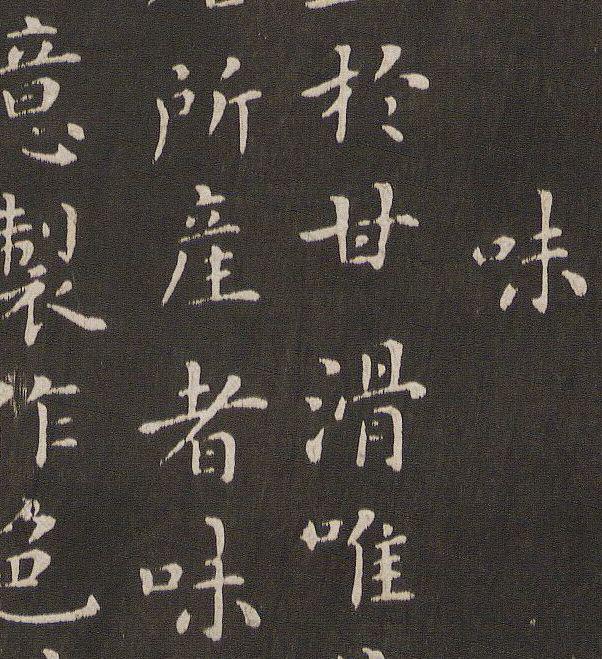 味
於甘滑唯
所產者味
意製作色